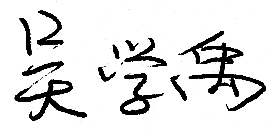 吴学禹